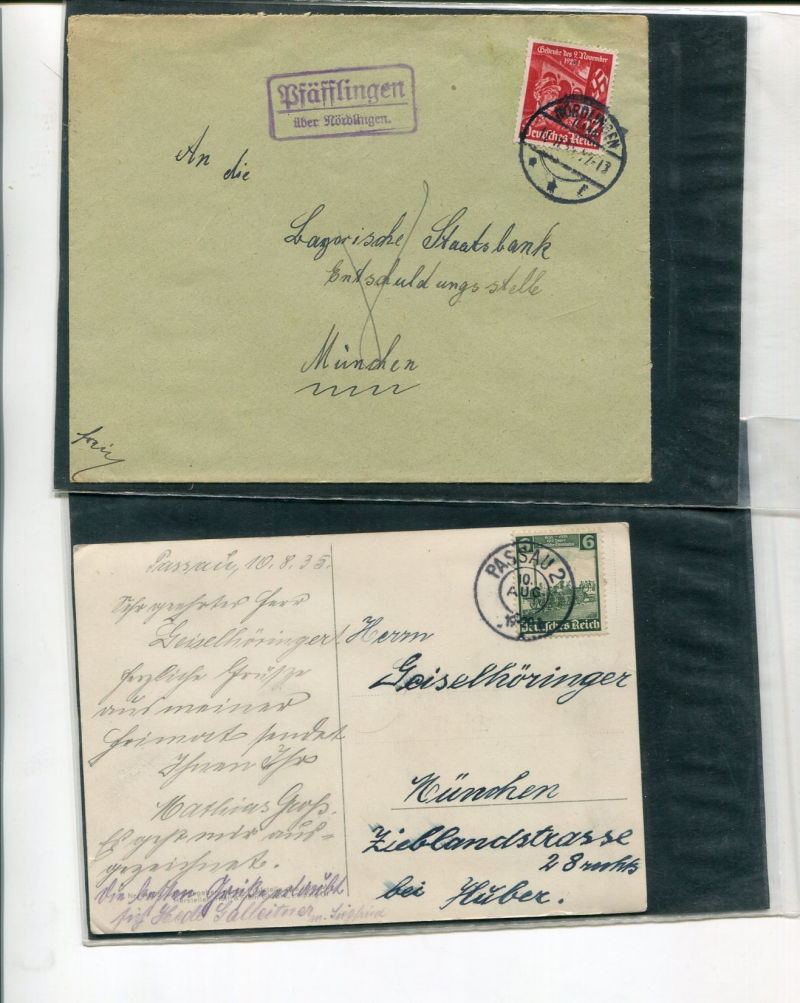 Pfäfflingen
über Nördlingen.
Gedenkt des 9. November
1923!
Deutsches Reich
NÖRDLINGEN
An die
Bayerische Staatsbank
Entschuldungsstelle
München
frei
Passau, 10.8.35.
Sehr geehrter Herr
Geiselhöringer!
Herzliche Grüße
aus meiner
Heimat sendet
Ihnen Ihr
Mathias Groß.
Es geht mir aus-
gezeichnet.
Die besten Grüße erlaubt
sich Hede
PASSAU 2
10.
AUG
6
Deutsches Reich
Herrn
Geiselhöringer
München
Zieblandstrasse
28 rechts
bei Huber.